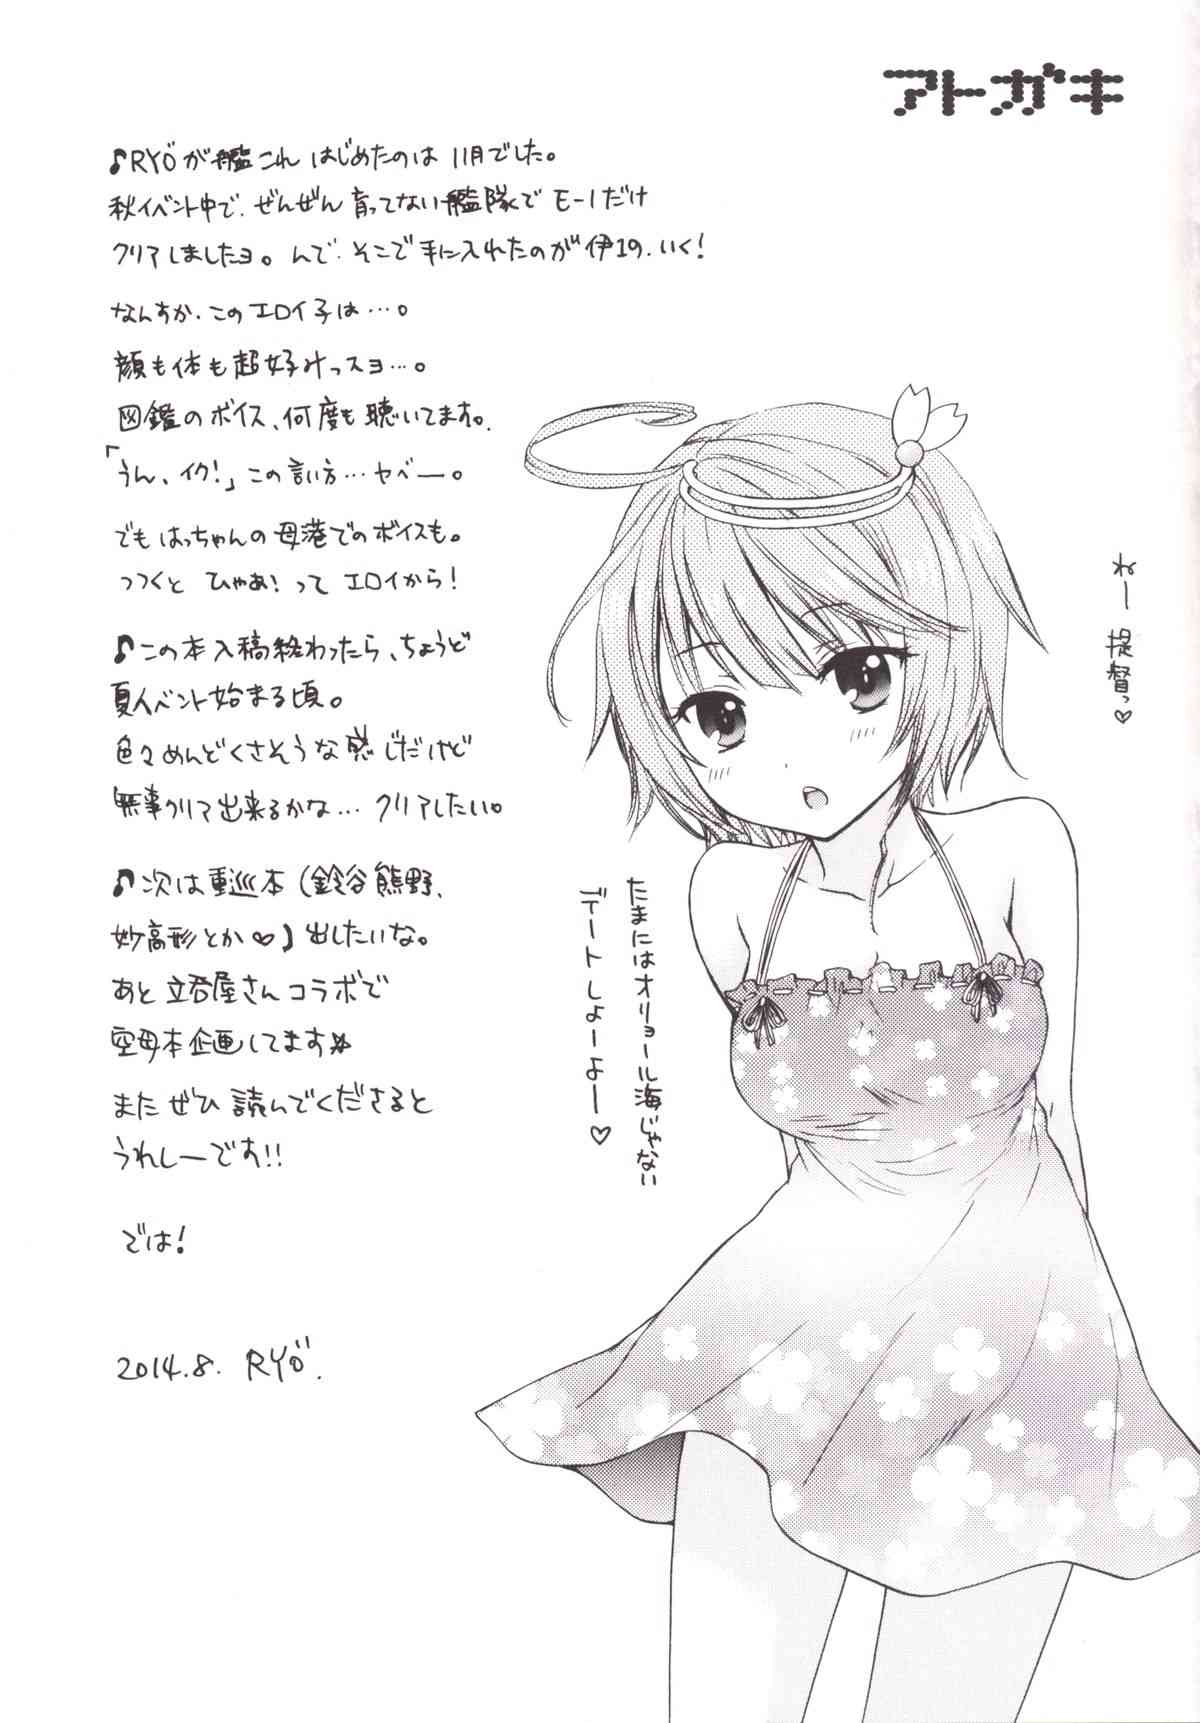 アトガキ
♪RYÖが艦これ はじめたのは 11月でした。
秋イベント中で、ぜんぜん 育ってない艦隊で E-1だけ
クリアしましたヨ。んで、そこで手に入れたのが 伊19、いく!
なんすか、この エロイ子は…。
顔も体も超好みっスヨ…。
図鑑のボイス、何度も 聴いてます。
「うん、イク!」この言い方…ヤベー。
でも はっちゃんの 母港でのボイスも。
つつくと ひゃあ! って エロイから!
♪この本入稿終わったら、ちょうど
夏イベント始まる頃。
色々めんどくさそうな感じだけど
無事クリア出来るかな… クリアしたい。
♪次は重巡本 (鈴谷熊野、
妙高形とか♡) 出したいな。
あと 立呑屋さん コラボで
空母本企画してます☆
また ぜひ 読んでくださると
うれしーです!!
では!
2014.8. RYÖ.
ねー 提督っ♡
たまにはオリョール海じゃない
デートしよーよー♡